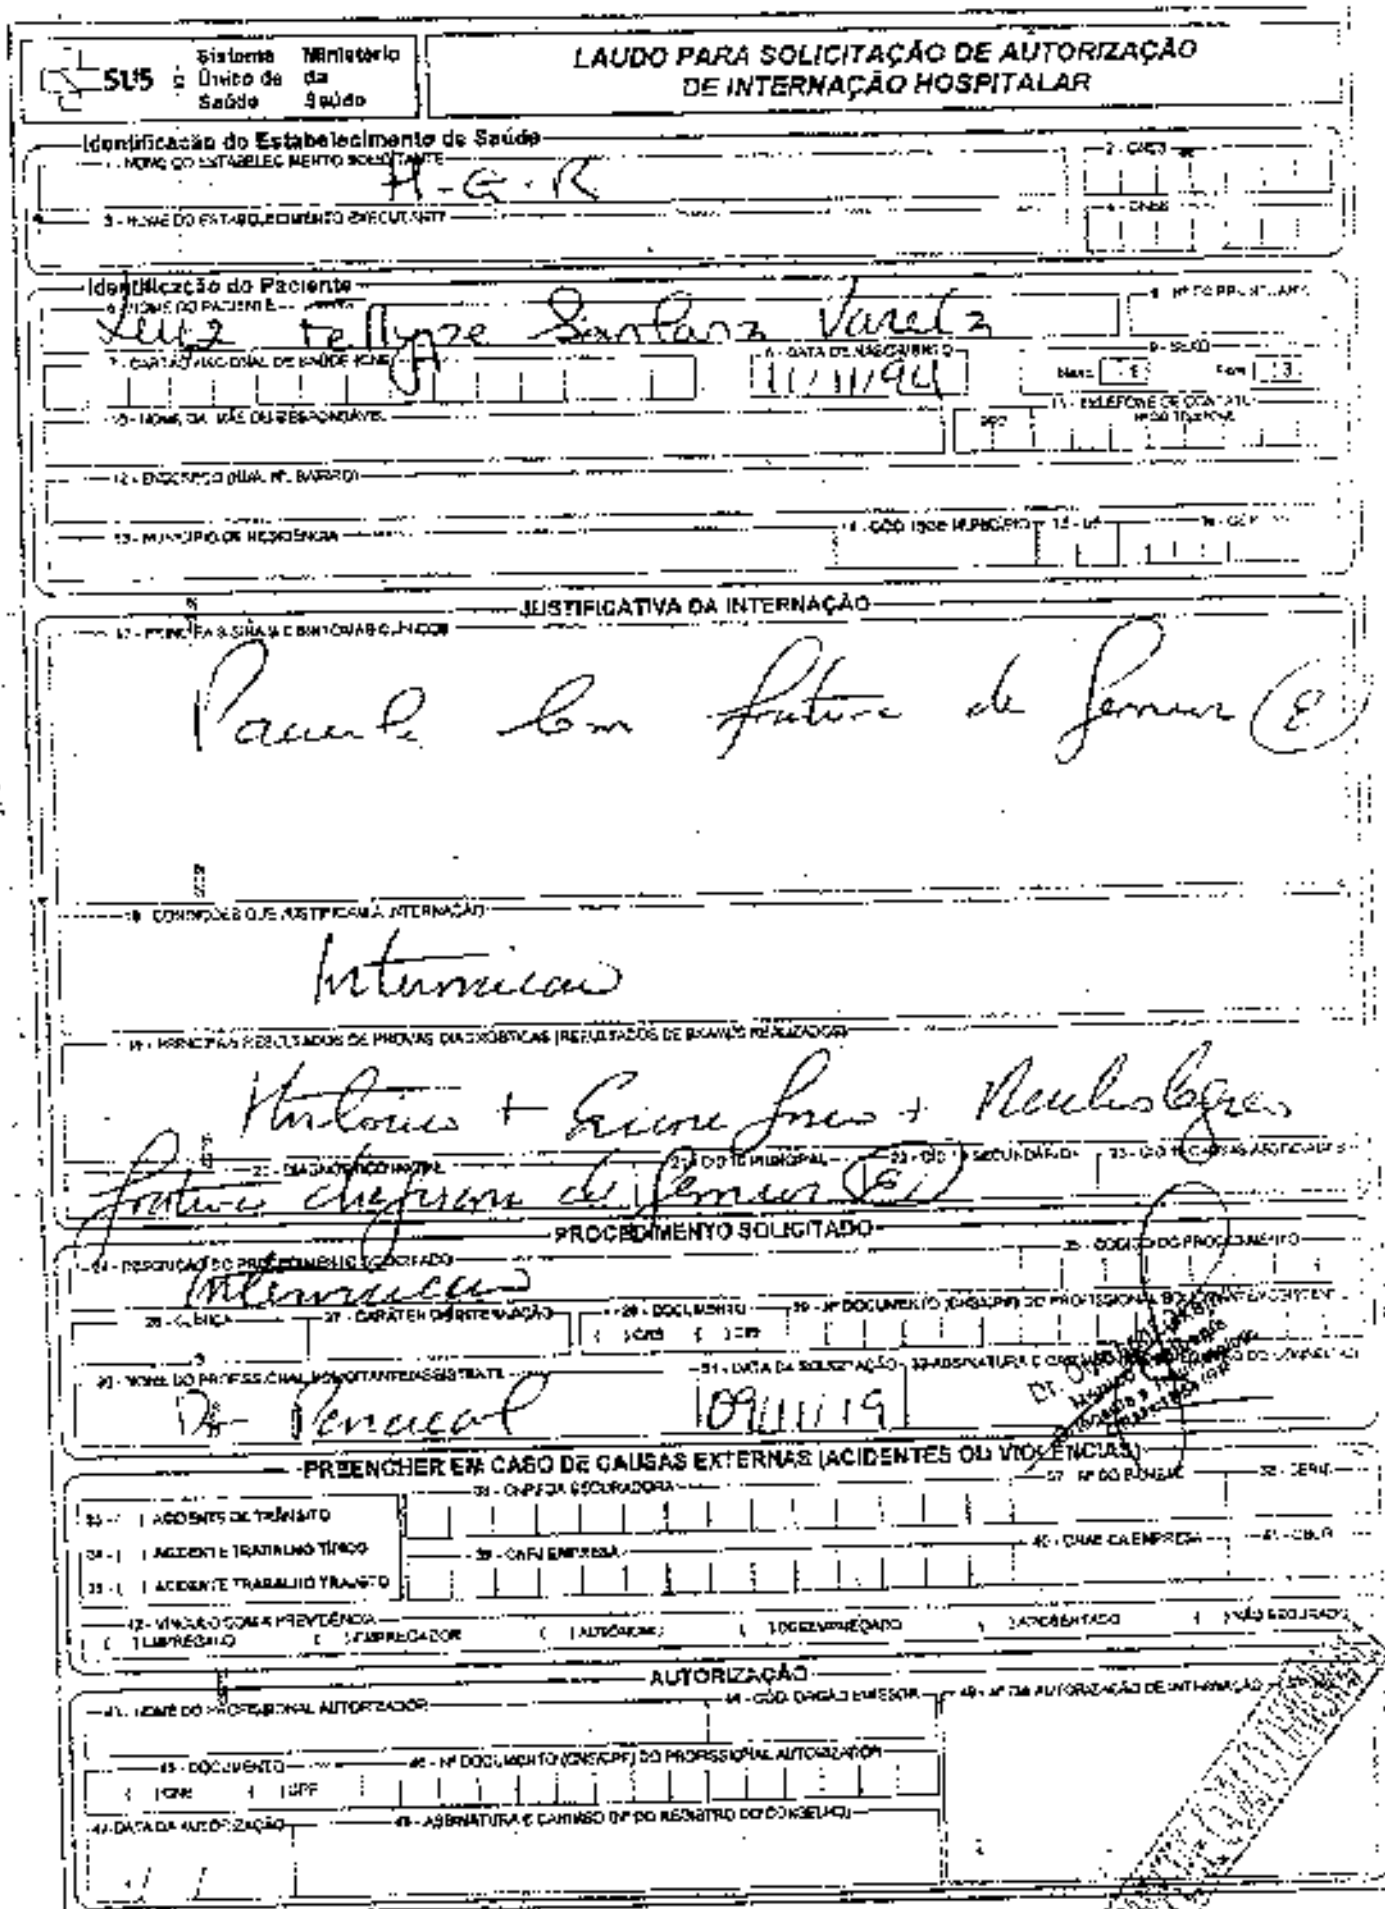 SUS
Sistema Único de Saúde
Ministério da Saúde
LAUDO PARA SOLICITAÇÃO DE AUTORIZAÇÃO
DE INTERNAÇÃO HOSPITALAR
Identificação do Estabelecimento de Saúde
1 - NOME DO ESTABELECIMENTO SOLICITANTE
2 - CNES
H.G.R
3 - NOME DO ESTABELECIMENTO EXECUTANTE
4 - CNES
Identificação do Paciente
5 - NOME DO PACIENTE
6 - Nº DO PRONTUÁRIO
Luiz Fellype Santana Varela
7 - CARTÃO NACIONAL DE SAÚDE (CNS)
8 - DATA DE NASCIMENTO
9 - SEXO
11/11/94
Masc. 1
Fem. 3
10 - NOME DA MÃE OU RESPONSÁVEL
11 - TELEFONE DE CONTATO
DDD
Nº DO TELEFONE
12 - ENDEREÇO (RUA, Nº, BAIRRO)
13 - MUNICÍPIO DE RESIDÊNCIA
14 - CÓD. IBGE MUNICÍPIO
15 - UF
16 - CEP
JUSTIFICATIVA DA INTERNAÇÃO
17 - PRINCIPAIS SINAIS E SINTOMAS CLÍNICOS
Paciente com fratura de femur (E)
18 - CONDIÇÕES QUE JUSTIFICAM A INTERNAÇÃO
Internacao
19 - PRINCIPAIS RESULTADOS DE PROVAS DIAGNÓSTICAS (RESULTADOS DE EXAMES REALIZADOS)
Historia + Exame fisico +
20 - DIAGNÓSTICO INICIAL
21 - CID 10 PRINCIPAL
22 - CID 10 SECUNDÁRIO
23 - CID 10 CAUSAS ASSOCIADAS
fratura de femur (E)
PROCEDIMENTO SOLICITADO
24 - DESCRIÇÃO DO PROCEDIMENTO SOLICITADO
25 - CÓDIGO DO PROCEDIMENTO
Internacao
26 - CLÍNICA
27 - CARÁTER DA INTERNAÇÃO
28 - DOCUMENTO
29 - Nº DOCUMENTO (CNS/CPF) DO PROFISSIONAL SOLICITANTE/ASSISTENTE
( ) CNS ( ) CPF
30 - NOME DO PROFISSIONAL SOLICITANTE/ASSISTENTE
31 - DATA DA SOLICITAÇÃO
32 - ASSINATURA E CARIMBO (Nº DO REGISTRO DO CONSELHO)
Dr
09/11/19
Dr.
PREENCHER EM CASO DE CAUSAS EXTERNAS (ACIDENTES OU VIOLÊNCIAS)
33 - ( ) ACIDENTE DE TRÂNSITO
36 - CNPJ DA SEGURADORA
37 - Nº DO BILHETE
38 - SÉRIE
34 - ( ) ACIDENTE TRABALHO TÍPICO
39 - CNPJ EMPRESA
40 - CNAE DA EMPRESA
41 - CBOR
35 - ( ) ACIDENTE TRABALHO TRAJETO
42 - VÍNCULO COM A PREVIDÊNCIA
( ) EMPREGADO ( ) EMPREGADOR ( ) AUTÔNOMO ( ) DESEMPREGADO ( ) APOSENTADO ( ) NÃO SEGURADO
AUTORIZAÇÃO
43 - NOME DO PROFISSIONAL AUTORIZADOR
44 - CÓD. ÓRGÃO EMISSOR
49 - Nº DA AUTORIZAÇÃO DE INTERNAÇÃO
45 - DOCUMENTO
46 - Nº DOCUMENTO (CNS/CPF) DO PROFISSIONAL AUTORIZADOR
( ) CNS ( ) CPF
47 - DATA DA AUTORIZAÇÃO
48 - ASSINATURA E CARIMBO (Nº DO REGISTRO DO CONSELHO)
/ /